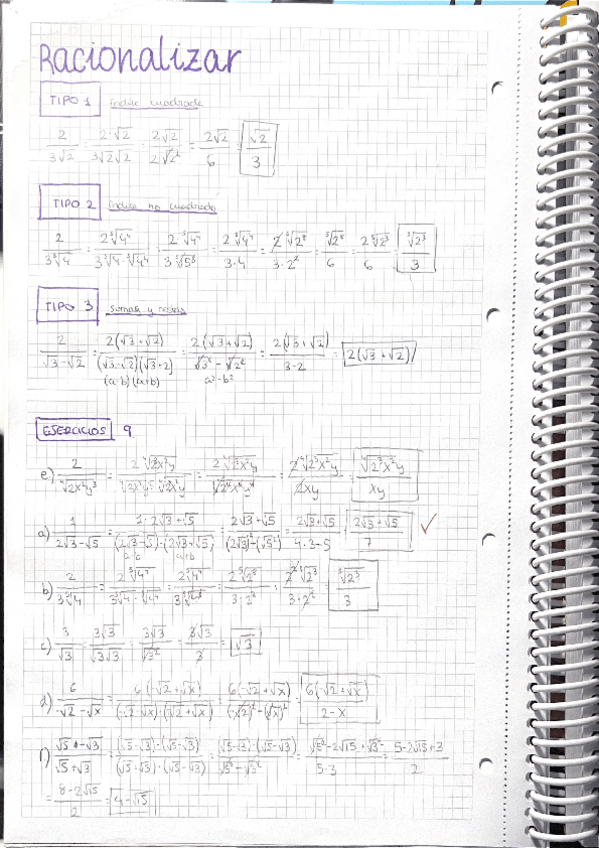 Racionalizar
TIPO 1 índice cuadrado
2/3√2 = 2·√2/3√2√2 = 2√2/2√2² = 2√2/6 = √2/3
TIPO 2 índice no cuadrado
2/3⁵√4 = 2⁵√4⁴/3⁵√4·⁵√4⁴ = 2·⁵√4⁴/3·⁵√5⁵ = 2⁵√4⁴/3·4 = 2⁵√2⁸/3·2² = ⁵√2⁸/6 = 2⁵√2³/6 = ⁵√2³/3
TIPO 3 sumas y restas
2/√3-√2 = 2(√3+√2)/(√3-√2)(√3+2) = 2(√3+√2)/√3²-√2² = 2(√3+√2)/3-2 = 2(√3+√2)
(a-b)(a+b) a²-b²
EJERCICIOS 9
e) 2/⁴√2x²y³ = 2⁴√2³x²y = 2⁴√2³x²y = 2⁴√2³x²y/2xy = ⁴√2³x²y/xy
a) 1/2√3-√5 = 1·2√3+√5/(2√3-√5)·(2√3+√5) = 2√3+√5/(2√3)²-(√5)² = 2√3+√5/4·3-5 = 2√3+√5/7 ✓
a-b a+b
b) 2/3⁵√4 = 2⁵√4⁴/3⁵√4·⁵√4⁴ = 2⁵√4⁴ = 2⁵√2⁸/3·2² = 2⁵√2³/3·2² = ⁵√2³/3
c) 3/√3 = 3√3/√3√3 = 3√3/√3² = 3√3/3 = √3
d) 6/√2-√x = 6(√2+√x)/(√2-√x)·(√2+√x) = 6(√2+√x)/(√2)²-(√x)² = 6(√2+√x)/2-x
f) √5-√3/√5+√3 = (√5-√3)·(√5-√3)/(√5+√3)·(√5-√3) = (√5-√3)·(√5-√3)/√5²-√3² = √5²-2√15+√3²/5-3 = 5-2√15+3/2
= 8-2√15/2 = 4-√15